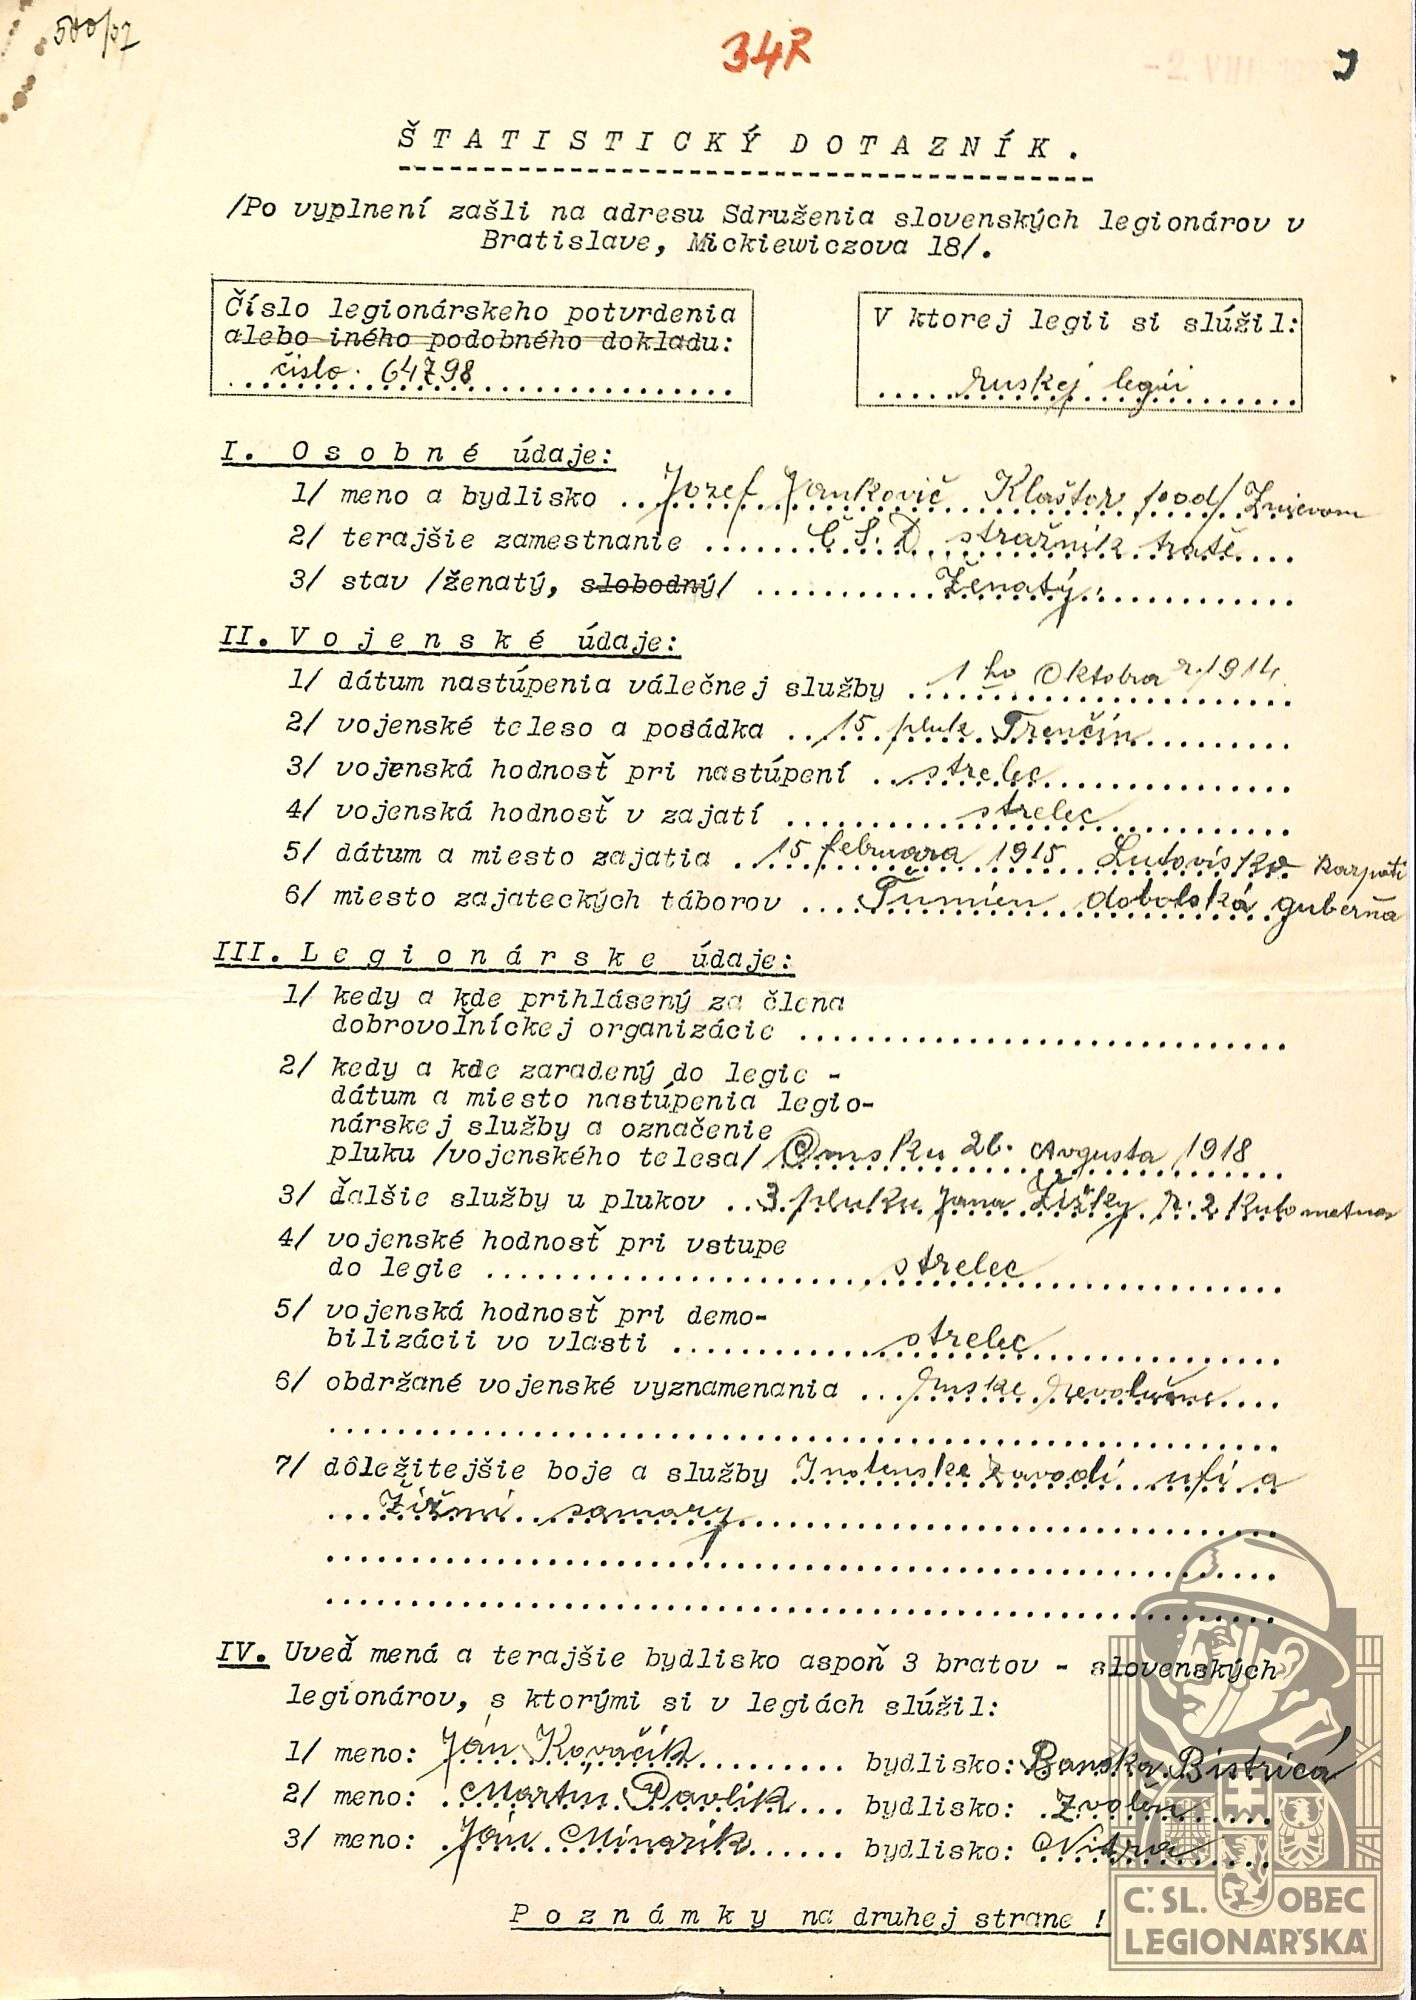 500/37
34R
-2. VIII.
J
ŠTATISTICKÝ DOTAZNÍK.
/Po vyplnení zašli na adresu Sdruženia slovenských legionárov v
Bratislave, Mickiewiczova 18/.
Číslo legionárskeho potvrdenia
alebo iného podobného dokladu:
číslo. 64798
V ktorej legii si slúžil:
ruskej legii
I. Osobné údaje:
1/ meno a bydlisko Jozef Jankovič Kláštor pod/Znievom
2/ terajšie zamestnanie Č.S.D strážnik trate
3/ stav /ženatý, slobodný/ Ženatý.
II. Vojenské údaje:
1/ dátum nastúpenia válečnej služby 1 ho Oktobra r. 1914.
2/ vojenské teleso a posádka 15 pluk Trenčín
3/ vojenská hodnosť pri nastúpení strelec
4/ vojenská hodnosť v zajatí strelec
5/ dátum a miesto zajatia 15 februara 1915 Lutovisko Karpati
6/ miesto zajateckých táborov Ťumien dobolská guberňa
III. Legionárske údaje:
1/ kedy a kde prihlásený za člena
dobrovoľníckej organizácie
2/ kedy a kde zaradený do legie -
dátum a miesto nastúpenia legio-
nárskej služby a označenie
pluku /vojenského telesa/ Omsku 26. Avgusta 1918
3/ ďalšie služby u plukov 3 pluku Jana Žižky r. 2 Kulometna
4/ vojenské hodnosť pri vstupe
do legie strelec
5/ vojenská hodnosť pri demo-
bilizácii vo vlasti strelec
6/ obdržané vojenské vyznamenania ruske revolučne
7/ dôležitejšie boje a služby zavodi ufi a
samary
IV. Uveď mená a terajšie bydlisko aspoň 3 bratov - slovenských
legionárov, s ktorými si v legiách slúžil:
1/ meno: Ján Kovačik bydlisko: Banska Bistrica
2/ meno: Martin Pavlik bydlisko: Zvolen
3/ meno: Ján Minarik bydlisko: Nitra
Poznámky na druhej strane !
Č.SL. OBEC
LEGIONÁŘSKÁ